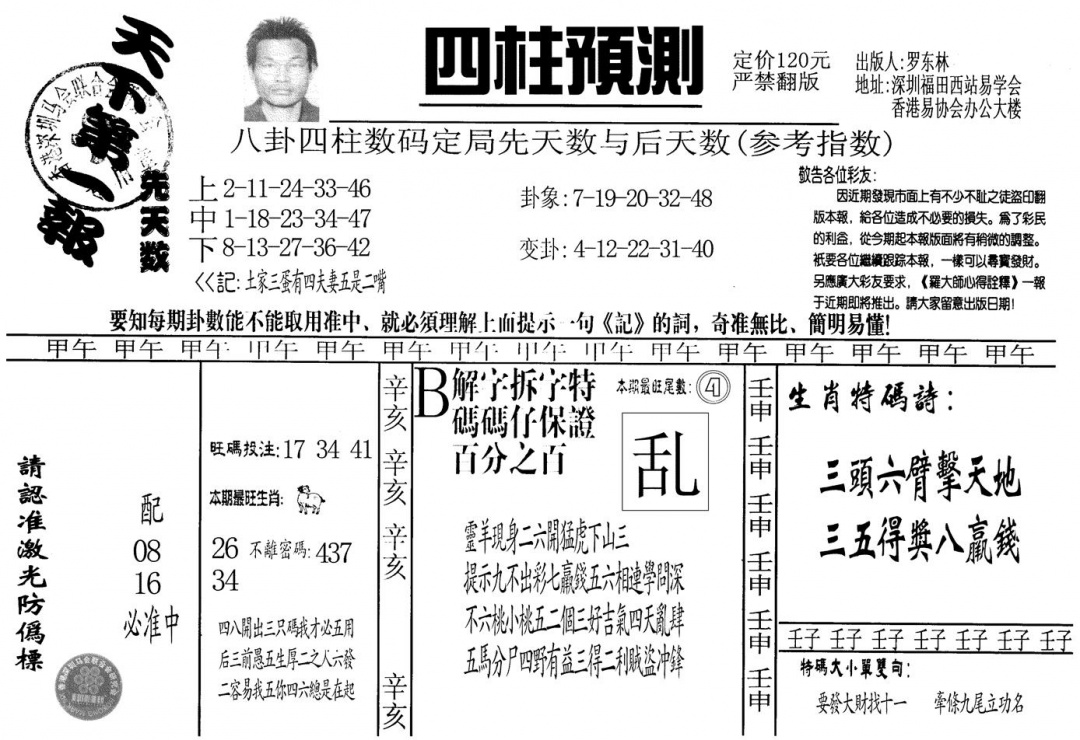 天下第一報
四柱預測
定价120元
严禁翻版
出版人:罗东林
地址:深圳福田西站易学会
香港易协会办公大楼
八卦四柱数码定局先天数与后天数(参考指数)
先天数
上 2-11-24-33-46
中 1-18-23-34-47
下 8-13-27-36-42
<<記:土家三蛋有四夫妻五是二嘴
卦象:7-19-20-32-48
变卦:4-12-22-31-40
敬告各位彩友:
因近期發現市面上有不少不耻之徒盜印翻
版本報,給各位造成不必要的損失。爲了彩民
的利益,從今期起本報版面將有稍微的調整。
祇要各位繼續跟踪本報,一樣可以尋寶發財。
另應廣大彩友要求,《羅大師心得詮釋》一報
于近期即將推出。請大家留意出版日期!
要知每期卦數能不能取用准中、就必須理解上面提示一句《記》的詞,奇准無比、簡明易懂!
甲午 甲午 甲午 甲午 甲午 甲午 甲午 甲午 甲午 甲午 甲午 甲午 甲午 甲午 甲午
請認准激光防僞標
配
08
16
必准中
旺碼投注:17 34 41
本期最旺生肖:
26 不離密碼:437
34
四八開出三只碼我才必五用
后三前愚五生厚二之人六發
二容易我五你四六總是在起
辛亥
辛亥
辛亥
辛亥
B 解字拆字特
碼碼仔保證
百分之百
本期最旺尾數:④
乱
靈羊現身二六開猛虎下山三
提示九不出彩七贏錢五六相連學問深
不六桃小桃五二個三好吉氣四天亂肆
五馬分尸四野有益三得二利賊盜冲鋒
壬申
壬申
壬申
壬申
壬申
壬申
生肖特碼詩:
三頭六臂擊天地
三五得獎八贏錢
壬子 壬子 壬子 壬子 壬子 壬子 壬子
特碼大小單雙句:
要發大財找十一 牽條九尾立功名